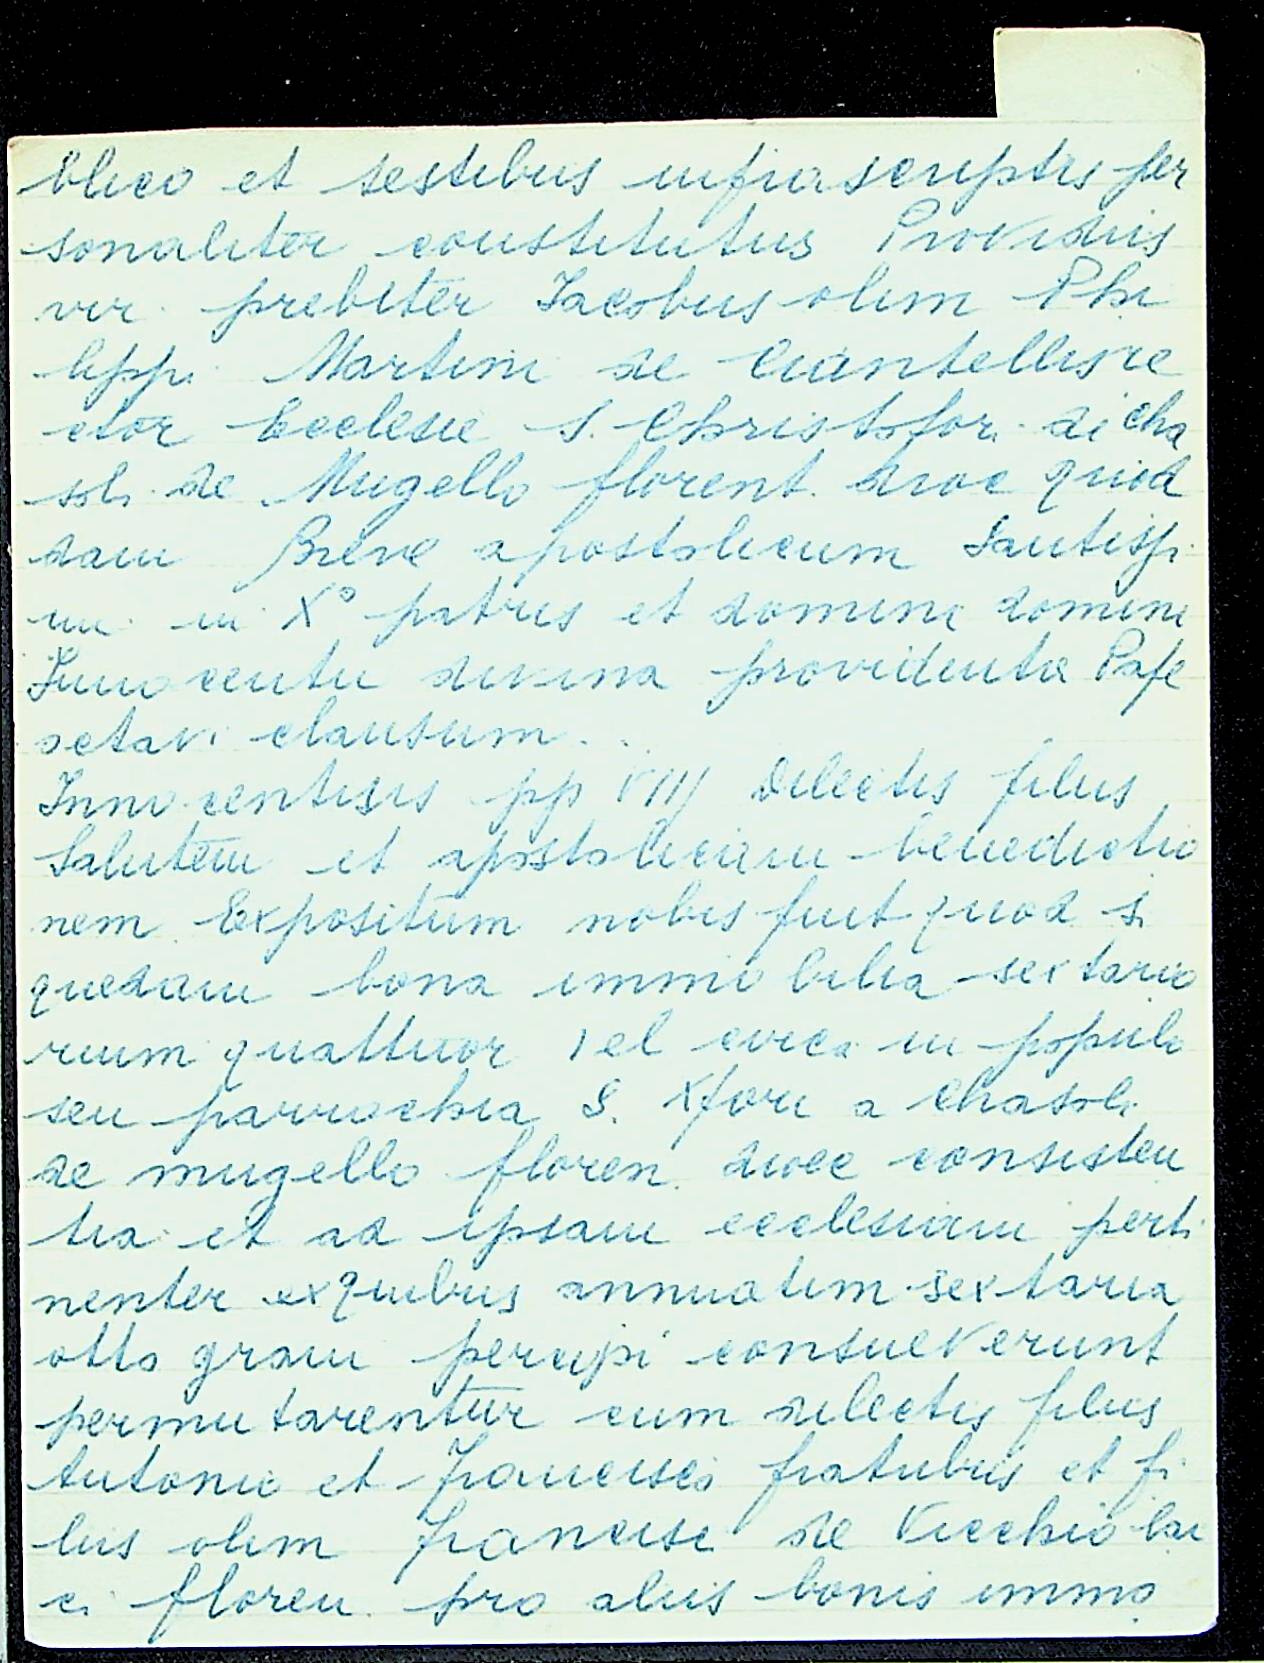 blico et testibus infrascriptis per
sonaliter constitutus Providus
vir prebiter Iacobus olim Phi
lippi Martini de Ciantellis re
ctor Ecclesie S. Christofori di Cha
soli de Mugello florent. dioc quod
dam Breve apostolicum Santissi
mi in X° patris et domini domini
Innocentii divina providentia Pape
octavi clausum...
Innocentius pp VIII Dilectis filiis
Salutem et apostolicam benedictio
nem Expositum nobis fuit quod si
quedam bona immobilia sextario
rium quattuor vel circa in populo
seu parrochia S. Xfori a Chasoli
de mugello floren. dioce consisten
tia et ad ipsam ecclesiam perti
nenter ex quibus annuatim sextaria
otto grani percipi consueverunt
permutarentur cum dilectis filiis
Antonio et Francisco fratribus et fi
liis olim Francisci de Vicchio lai
ci floren. pro aliis bonis immo